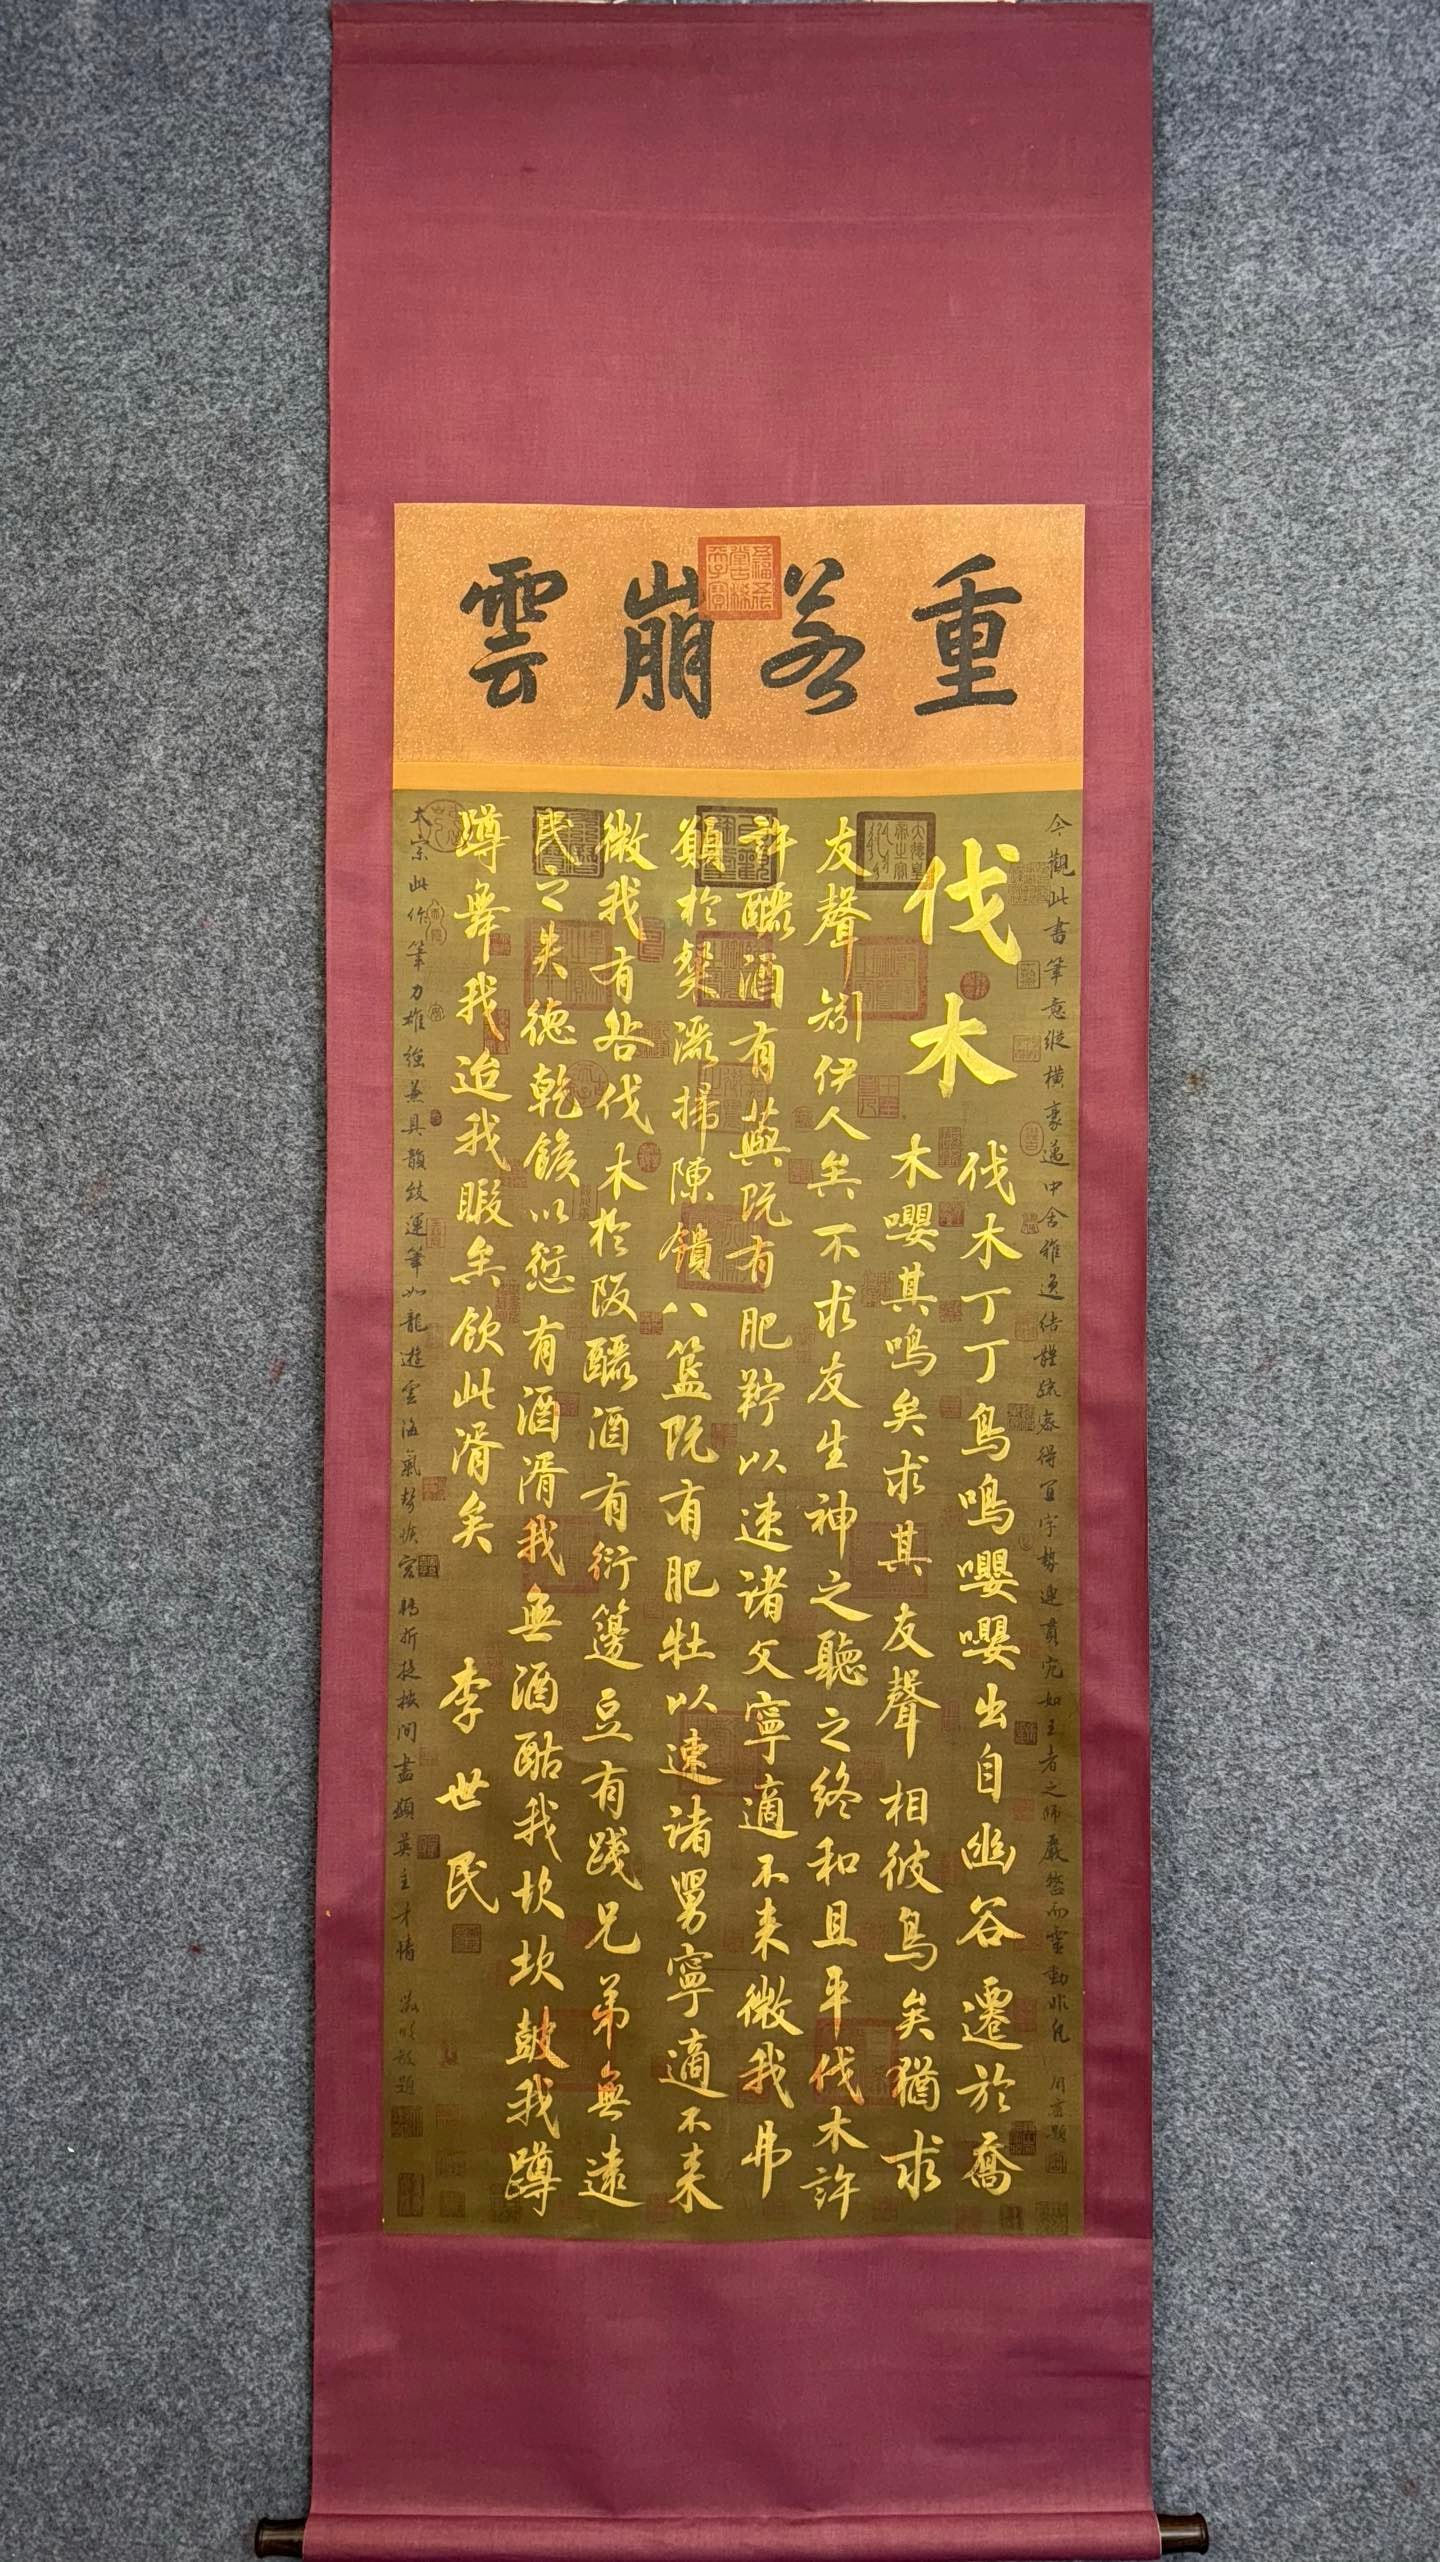 重若崩雲
今觀此書筆意縱橫豪邁中含雅逸結體疏密得宜字勢連貫宛如王者之師嚴整而靈動非凡
伐木
伐木丁丁鳥鳴嚶嚶出自幽谷遷於喬
木嚶其鳴矣求其友聲相彼鳥矣猶求
友聲矧伊人矣不求友生神之聽之終和且平伐木許
許釃酒有藇既有肥羜以速諸父寧適不來微我弗
顧於粲洒掃陳饋八簋既有肥牡以速諸舅寧適不來
微我有咎伐木於阪釃酒有衍籩豆有踐兄弟無遠
民之失德乾餱以愆有酒湑我無酒酤我坎坎鼓我蹲
蹲舞我迨我暇矣飲此湑矣
李世民
太宗此作筆力雄強兼具韻致運筆如龍遊雲海氣勢恢宏轉折提按間盡顯英主才情